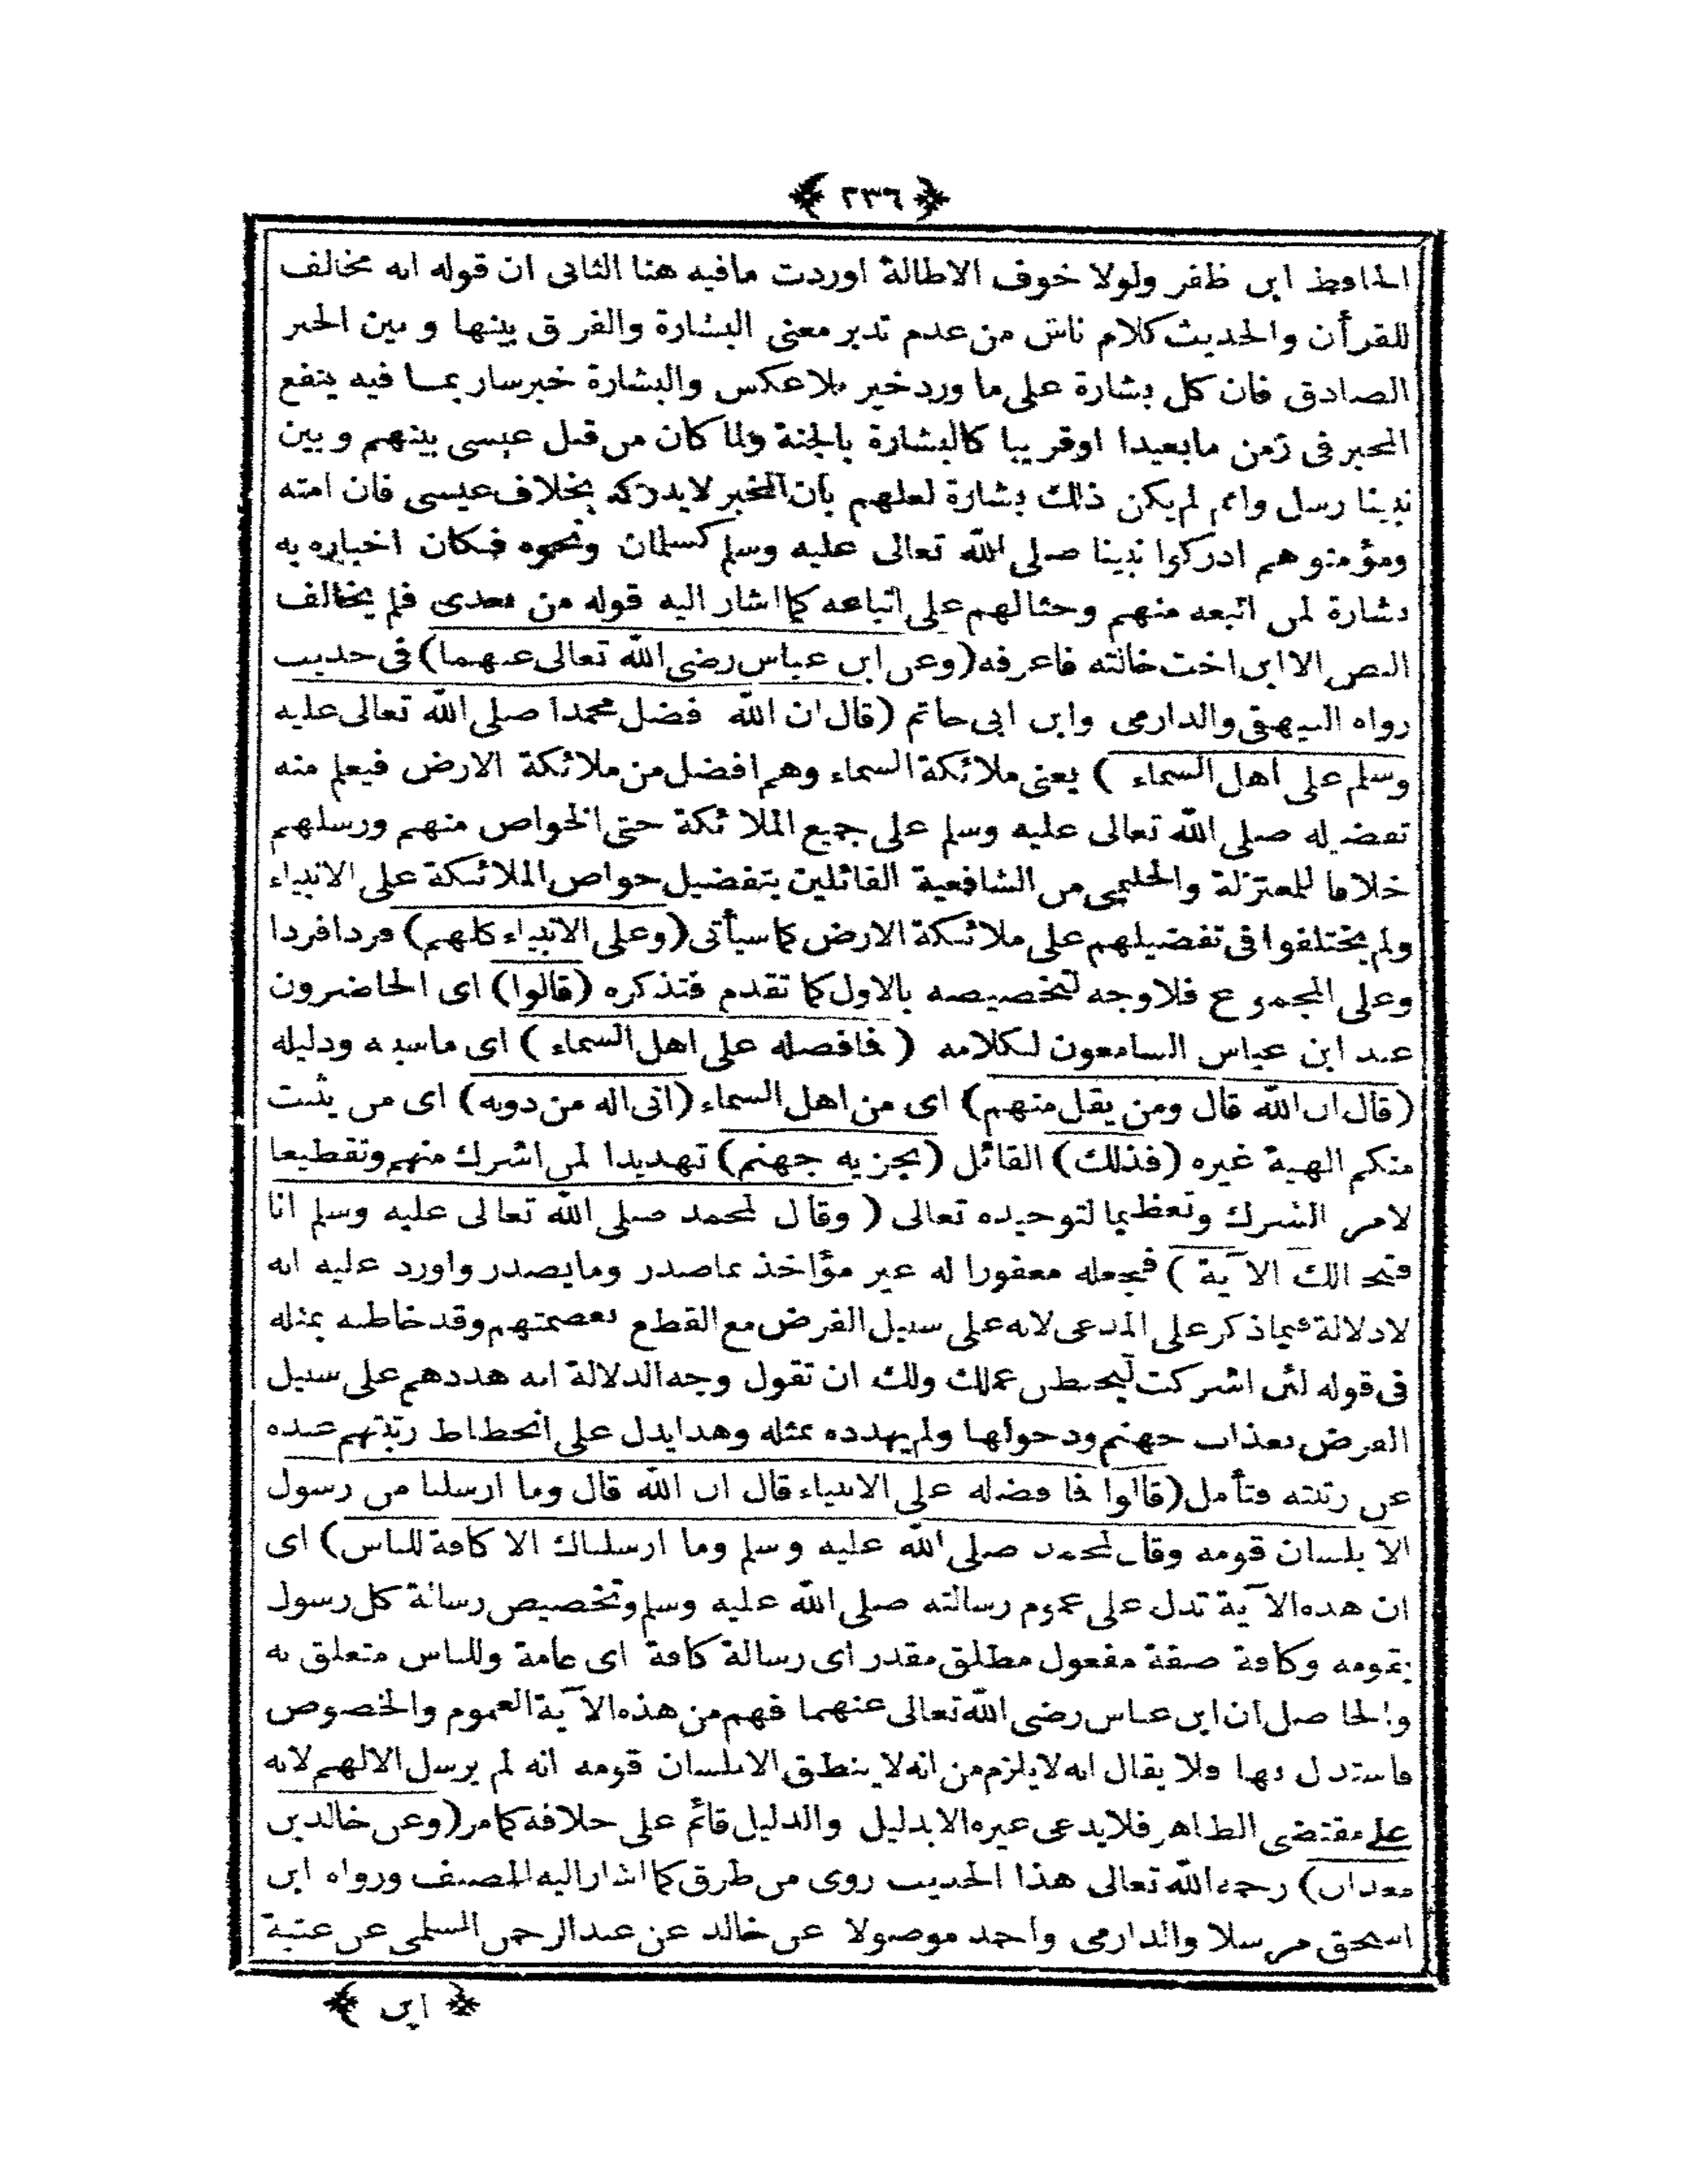 ﴿ ٢٣٦ ﴾
الحافظ ابن ظفر ولولا خوف الاطالة اوردت مافيه هنا الثانى ان قوله انه مخالف
للقرأن والحديث كلام ناش من عدم تدبر معنى البشارة والفرق بينها وبين الخبر
الصادق فان كل بشارة على ما ورد خبر بلا عكس والبشارة خبر سار بما فيه ينفع
المخبر فى زمن ما بعيدا او قريبا كالبشارة بالجنة ولما كان من قبل عيسى بينهم وبين
نبينا رسل وامم لم يكن ذلك بشارة لعلهم بان المخبر لا يدركه بخلاف عيسى فان امته
ومؤمنوهم ادركوا نبينا صلى الله تعالى عليه وسلم كسلمان ونحوه فكان اخباره به
بشارة لمن اتبعه منهم وحثا لهم على اتباعه كما اشار اليه قوله من بعدى فلم يخالف
النص الا ابن اخت خالته فاعرفه (وعن ابن عباس رضى الله تعالى عنهما) فى حديث
رواه البيهقى والدارمى وابن ابى حاتم (قال ان الله فضل محمدا صلى الله تعالى عليه
وسلم على اهل السماء ) يعنى ملائكة السماء وهم افضل من ملائكة الارض فيعلم منه
تفضيله صلى الله تعالى عليه وسلم على جميع الملائكة حتى الخواص منهم ورسلهم
خلافا للمعتزلة والحليمى من الشافعية القائلين بتفضيل خواص الملائكة على الانبياء
ولم يختلفوا فى تفضيلهم على ملائكة الارض كما سيأتى (وعلى الانبياء كلهم) فردا فردا
وعلى المجموع فلا وجه لتخصيصه بالاول كما تقدم فتذكره (قالوا) اى الحاضرون
عند ابن عباس السامعون لكلامه ( فافضله على اهل السماء ) اى ماسببه ودليله
(قال ان الله قال ومن يقل منهم) اى من اهل السماء (انى اله من دونه) اى من يثبت
منكم الهية غيره (فذلك) القائل (نجزيه جهنم) تهديدا لمن اشرك منهم وتقطيعا
لامر الشرك وتعظيما لتوحيده تعالى ( وقال لمحمد صلى الله تعالى عليه وسلم انا
فتحنا لك الآية ) فجعله مغفورا له غير مؤاخذ بما صدر وما يصدر واورد عليه انه
لادلالة فيما ذكر على المدعى لانه على سبيل الفرض مع القطع بعصمتهم وقد خاطبه بمثله
فى قوله لئن اشركت ليحبطن عملك ولك ان تقول وجه الدلالة انه هددهم على سبيل
الفرض بعذاب جهنم ودخولها ولم يهدده بمثله وهذا يدل على انحطاط رتبتهم عنده
عن رتبته فتأمل (قالوا فما فضله على الانبياء قال ان الله قال وما ارسلنا من رسول
الا بلسان قومه وقال لمحمد صلى الله عليه وسلم وما ارسلناك الا كافة للناس) اى
ان هذه الآية تدل على عموم رسالته صلى الله عليه وسلم وتخصيص رسالة كل رسول
بقومه وكافة صفة مفعول مطلق مقدر اى رسالة كافة اى عامة وللناس متعلق به
والحاصل ان ابن عباس رضى الله تعالى عنهما فهم من هذه الآية العموم والخصوص
فاستدل بها ولا يقال انه لا يلزم من انه لا ينطق الا بلسان قومه انه لم يرسل الا لهم لانه
على مقتضى الظاهر فلا يدعى غيره الا بدليل والدليل قائم على خلافه كما مر (وعن خالد بن
معدان) رحمه الله تعالى هذا الحديث روى من طرق كما اشار اليه المصنف ورواه ابن
اسحق مرسلا والدارمى واحمد موصولا عن خالد عن عبد الرحمن السلمى عن عتبة
﴿ ابن ﴾